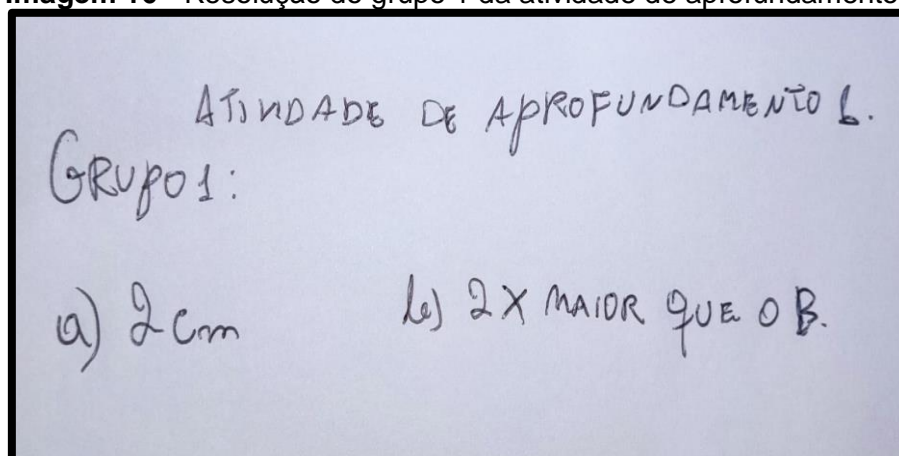 Resolução do grupo 1 da atividade de aprofundamento
ATIVIDADE DE APROFUNDAMENTO 1.
GRUPO 1:
a) 2 cm b) 2 X MAIOR QUE O B.